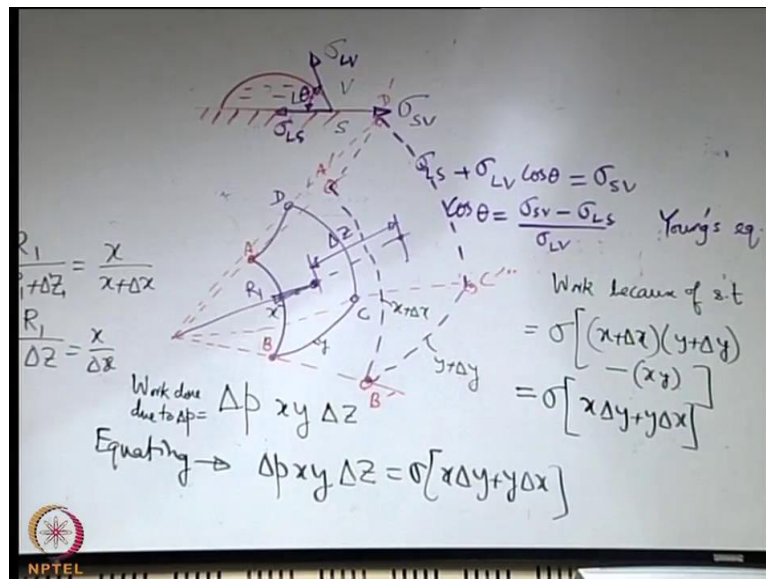 σLV
θ
V
S
σLS
σSV
σLS + σLV cosθ = σSV
cosθ = (σSV − σLS) / σLV
Young's eq.
D'
A'
D
ΔZ
A
R1
x
C
B
y
x+Δx
y+Δy
C'
B'
R1 / (R1+ΔZ) = x / (x+Δx)
R1 / ΔZ = x / Δx
Work because of s.t
= σ[(x+Δx)(y+Δy)
− (xy)]
= σ[xΔy+yΔx]
Work done
due to Δp = Δp xy ΔZ
Equating → Δp xy ΔZ = σ[xΔy+yΔx]
NPTEL